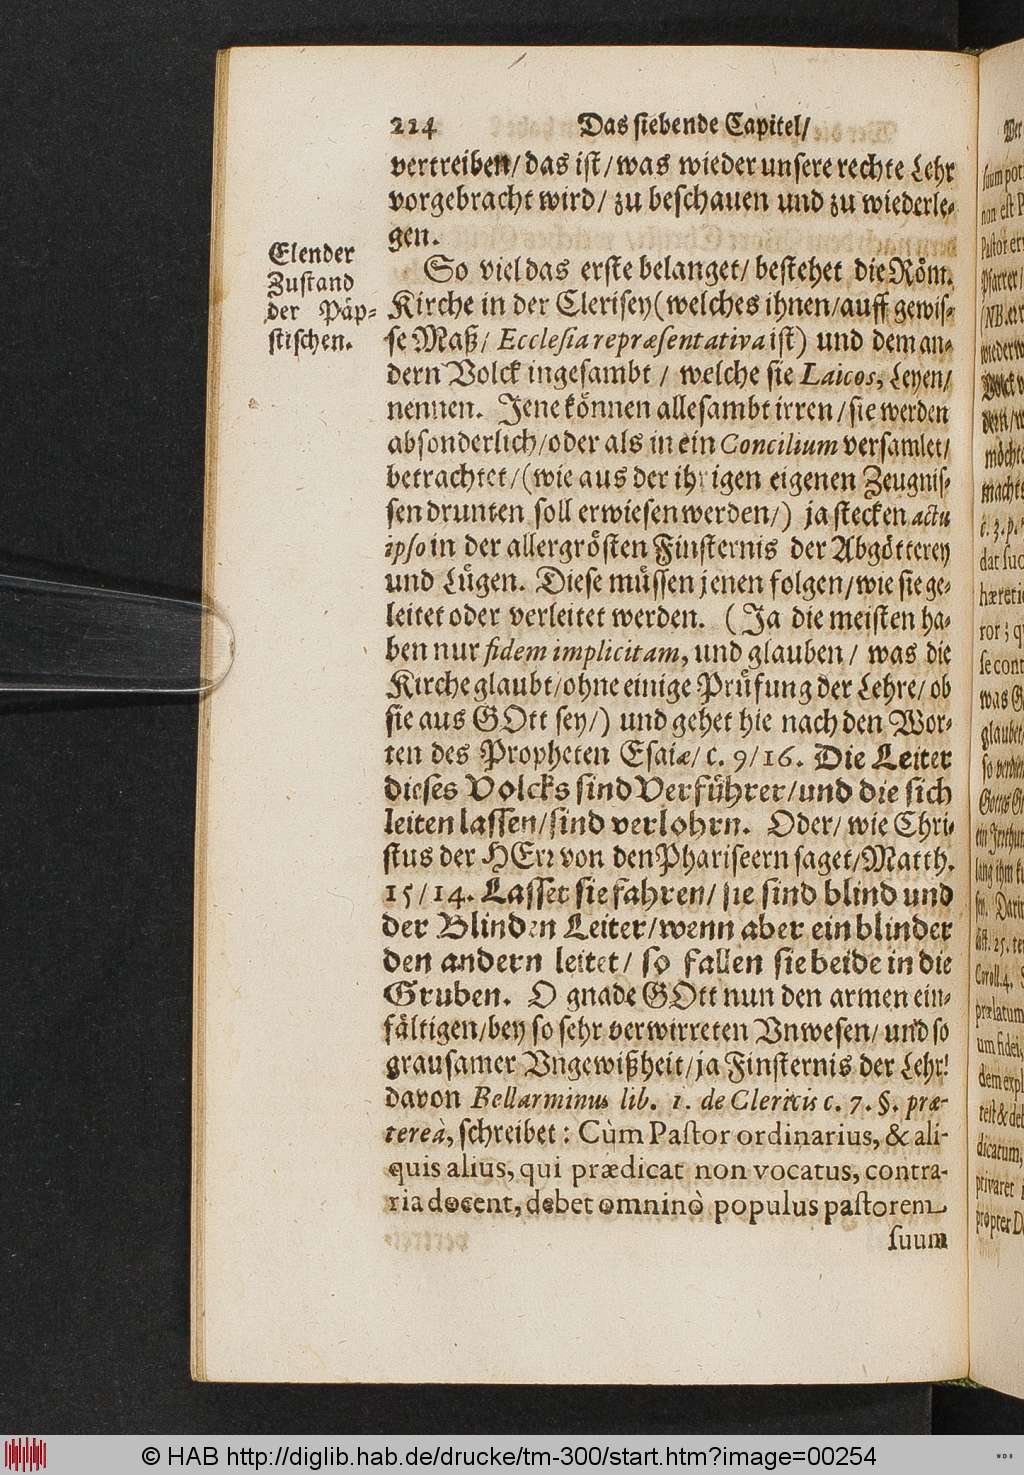 224 Das siebende Capitel/
vertreiben/ das ist/ was wieder unsere rechte Lehr
vorgebracht wird/ zu beschauen und zu wiederle-
gen.
Elender
Zustand
der Päp-
stischen.
So viel das erste belanget/ bestehet die Röm.
Kirche in der Clerisey (welches ihnen/ auff gewis-
se Maß/ Ecclesia repræsentativa ist) und dem an-
dern Volck ingesambt / welche sie Laicos, Leyen/
nennen. Jene können allesambt irren/ sie werden
absonderlich/ oder als in ein Concilium versamlet/
betrachtet/ (wie aus der ihrigen eigenen Zeugnis-
sen drunten soll erwiesen werden/) ja stecken actu
ipso in der allergrösten Finsternis der Abgötterey
und Lügen. Diese müssen jenen folgen/ wie sie ge-
leitet oder verleitet werden. (Ja die meisten ha-
ben nur fidem implicitam, und glauben / was die
Kirche glaubt/ ohne einige Prüfung der Lehre/ ob
sie aus GOtt sey/) und gehet hie nach den Wor-
ten des Propheten Esaiæ/ c. 9/16. Die Leiter
dieses Volcks sind Verführer/ und die sich
leiten lassen/ sind verlohrn. Oder/ wie Chri-
stus der HErr von den Phariseern saget/ Matth.
15/14. Lasset sie fahren/ sie sind blind und
der Blinden Leiter/ wenn aber ein blinder
den andern leitet/ so fallen sie beide in die
Gruben. O gnade GOtt nun den armen ein-
fältigen/ bey so sehr verwirreten Vnwesen/ und so
grausamer Vngewißheit/ ja Finsternis der Lehr!
davon Bellarminus lib. 1. de Clericis c. 7. §. præ-
tereà, schreibet: Cùm Pastor ordinarius, & ali-
quis alius, qui prædicat non vocatus, contra-
ria docent, debet omninò populus pastorem
suum
© HAB http://diglib.hab.de/drucke/tm-300/start.htm?image=00254